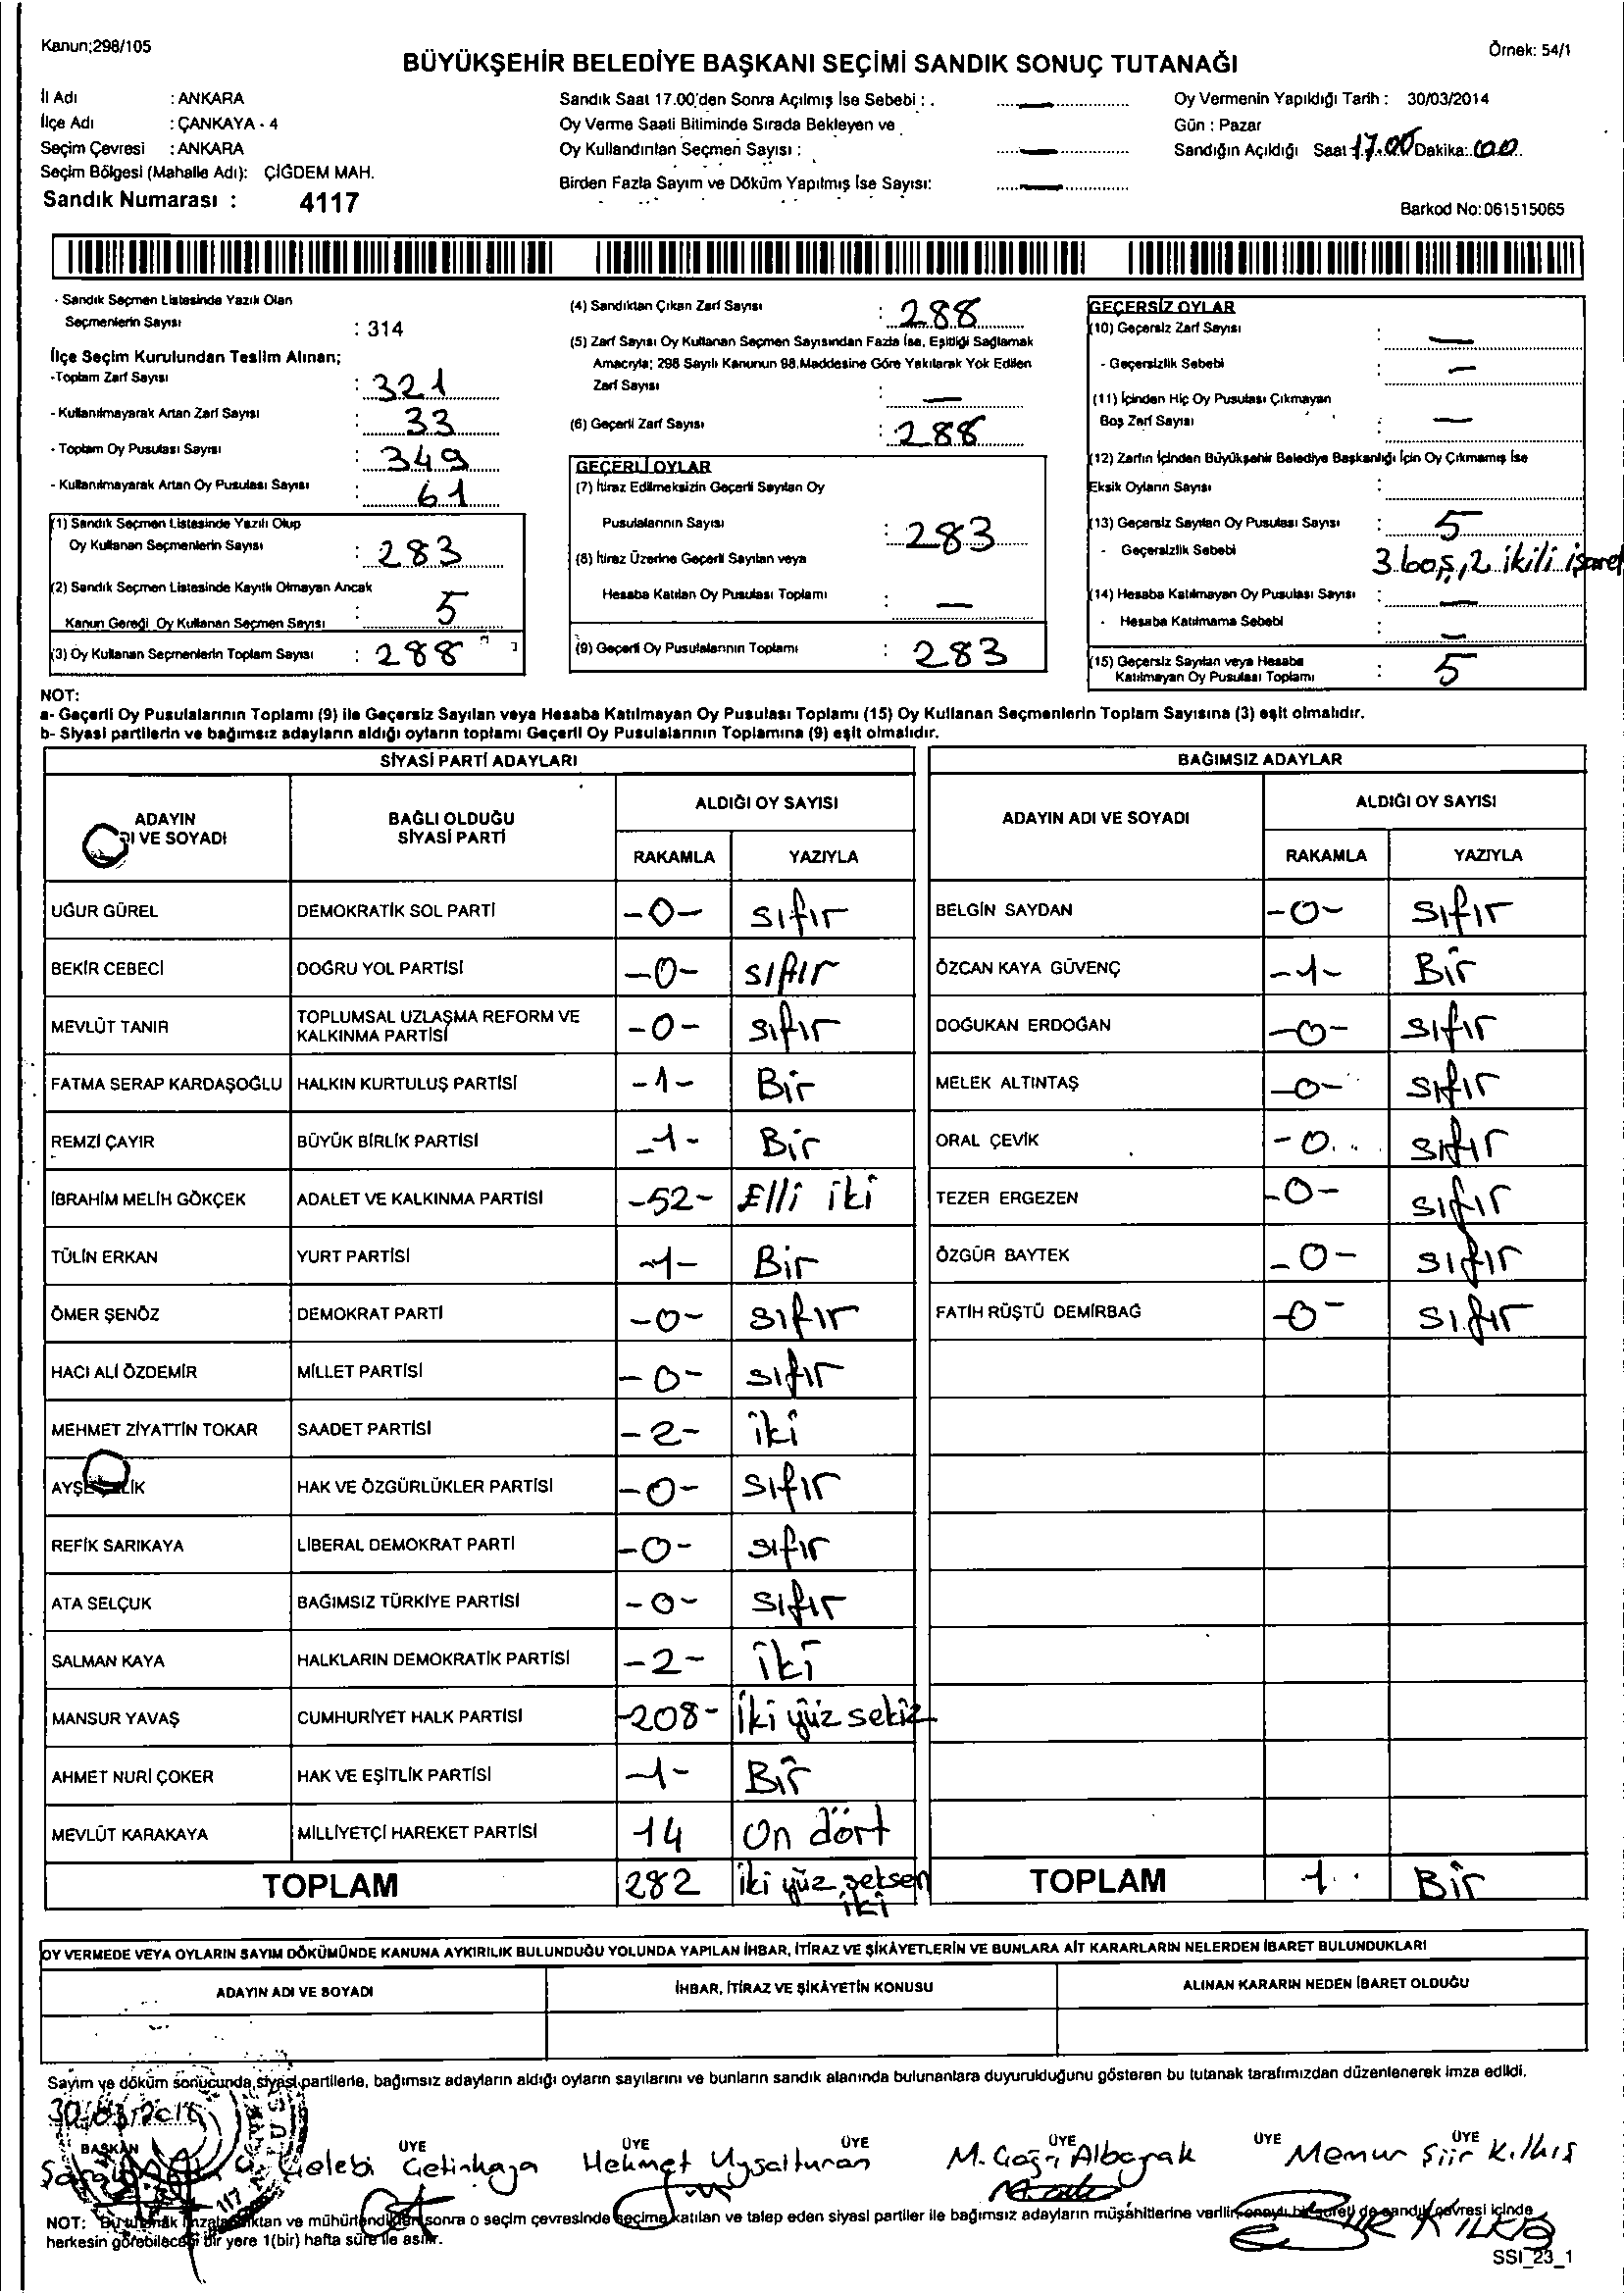 Kanun;298/105
Örnek: 54/1
BÜYÜKŞEHİR BELEDİYE BAŞKANI SEÇİMİ SANDIK SONUÇ TUTANAĞI
İl Adı : ANKARA
İlçe Adı : ÇANKAYA - 4
Seçim Çevresi : ANKARA
Seçim Bölgesi (Mahalle Adı): ÇİĞDEM MAH.
Sandık Numarası : 4117
Sandık Saat 17.00'den Sonra Açılmış İse Sebebi : . —
Oy Verme Saati Bitiminde Sırada Bekleyen ve
Oy Kullandırılan Seçmen Sayısı : —
Birden Fazla Sayım ve Döküm Yapılmış İse Sayısı: —
Oy Vermenin Yapıldığı Tarih : 30/03/2014
Gün : Pazar
Sandığın Açıldığı Saat 17.00 Dakika:.00
Barkod No:061515065
- Sandık Seçmen Listesinde Yazılı Olan
Seçmenlerin Sayısı : 314
İlçe Seçim Kurulundan Teslim Alınan;
-Toplam Zarf Sayısı : 321
- Kullanılmayarak Artan Zarf Sayısı : 33
- Toplam Oy Pusulası Sayısı : 349
- Kullanılmayarak Artan Oy Pusulası Sayısı : 61
(1) Sandık Seçmen Listesinde Yazılı Olup
Oy Kullanan Seçmenlerin Sayısı : 283
(2) Sandık Seçmen Listesinde Kayıtlı Olmayan Ancak
Kanun Gereği Oy Kullanan Seçmen Sayısı : 5
(3) Oy Kullanan Seçmenlerin Toplam Sayısı : 288
(4) Sandıktan Çıkan Zarf Sayısı : 288
(5) Zarf Sayısı Oy Kullanan Seçmen Sayısından Fazla İse, Eşitliği Sağlamak
Amacıyla; 298 Sayılı Kanunun 98.Maddesine Göre Yakılarak Yok Edilen
Zarf Sayısı : —
(6) Geçerli Zarf Sayısı : 288
GEÇERLİ OYLAR
(7) İtiraz Edilmeksizin Geçerli Sayılan Oy
Pusulalarının Sayısı : 283
(8) İtiraz Üzerine Geçerli Sayılan veya
Hesaba Katılan Oy Pusulası Toplamı : —
(9) Geçerli Oy Pusulalarının Toplamı : 283
GEÇERSİZ OYLAR
(10) Geçersiz Zarf Sayısı : —
- Geçersizlik Sebebi : —
(11) İçinden Hiç Oy Pusulası Çıkmayan
Boş Zarf Sayısı : —
(12) Zarfın İçinden Büyükşehir Belediye Başkanlığı İçin Oy Çıkmamış İse
Eksik Oyların Sayısı :
(13) Geçersiz Sayılan Oy Pusulası Sayısı : 5
- Geçersizlik Sebebi 3 boş, 2 ikili işaret
(14) Hesaba Katılmayan Oy Pusulası Sayısı : —
- Hesaba Katılmama Sebebi : —
(15) Geçersiz Sayılan veya Hesaba
Katılmayan Oy Pusulası Toplamı : 5
NOT:
a- Geçerli Oy Pusulalarının Toplamı (9) ile Geçersiz Sayılan veya Hesaba Katılmayan Oy Pusulası Toplamı (15) Oy Kullanan Seçmenlerin Toplam Sayısına (3) eşit olmalıdır.
b- Siyasi partilerin ve bağımsız adayların aldığı oyların toplamı Geçerli Oy Pusulalarının Toplamına (9) eşit olmalıdır.
SİYASİ PARTİ ADAYLARI
ADAYIN
DI VE SOYADI
BAĞLI OLDUĞU
SİYASİ PARTİ
ALDIĞI OY SAYISI
RAKAMLA YAZIYLA
UĞUR GÜREL DEMOKRATİK SOL PARTİ -0- sıfır
BEKİR CEBECİ DOĞRU YOL PARTİSİ -0- sıfır
MEVLÜT TANIR TOPLUMSAL UZLAŞMA REFORM VE
KALKINMA PARTİSİ -0- sıfır
FATMA SERAP KARDAŞOĞLU HALKIN KURTULUŞ PARTİSİ -1- Bir
REMZİ ÇAYIR BÜYÜK BİRLİK PARTİSİ -1- Bir
İBRAHİM MELİH GÖKÇEK ADALET VE KALKINMA PARTİSİ -52- Elli iki
TÜLİN ERKAN YURT PARTİSİ -1- Bir
ÖMER ŞENÖZ DEMOKRAT PARTİ -0- sıfır
HACI ALİ ÖZDEMİR MİLLET PARTİSİ -0- sıfır
MEHMET ZİYATTİN TOKAR SAADET PARTİSİ -2- iki
AYŞE ÇELİK HAK VE ÖZGÜRLÜKLER PARTİSİ -0- sıfır
REFİK SARIKAYA LİBERAL DEMOKRAT PARTİ -0- sıfır
ATA SELÇUK BAĞIMSIZ TÜRKİYE PARTİSİ -0- sıfır
SALMAN KAYA HALKLARIN DEMOKRATİK PARTİSİ -2- iki
MANSUR YAVAŞ CUMHURİYET HALK PARTİSİ -208- İki yüz sekiz
AHMET NURİ ÇOKER HAK VE EŞİTLİK PARTİSİ -1- Bir
MEVLÜT KARAKAYA MİLLİYETÇİ HAREKET PARTİSİ 14 On dört
TOPLAM 282 iki yüz seksen
iki
BAĞIMSIZ ADAYLAR
ADAYIN ADI VE SOYADI
ALDIĞI OY SAYISI
RAKAMLA YAZIYLA
BELGİN SAYDAN -0- sıfır
ÖZCAN KAYA GÜVENÇ -1- Bir
DOĞUKAN ERDOĞAN -0- sıfır
MELEK ALTINTAŞ -0- sıfır
ORAL ÇEVİK -0. sıfır
TEZER ERGEZEN -0- sıfır
ÖZGÜR BAYTEK -0- sıfır
FATİH RÜŞTÜ DEMİRBAĞ -0- sıfır
TOPLAM 1 Bir
OY VERMEDE VEYA OYLARIN SAYIM DÖKÜMÜNDE KANUNA AYKIRILIK BULUNDUĞU YOLUNDA YAPILAN İHBAR, İTİRAZ VE ŞİKÂYETLERİN VE BUNLARA AİT KARARLARIN NELERDEN İBARET BULUNDUKLARI
ADAYIN ADI VE SOYADI İHBAR, İTİRAZ VE ŞİKÂYETİN KONUSU ALINAN KARARIN NEDEN İBARET OLDUĞU
Sayım ve döküm sonucunda, siyasi partilerle, bağımsız adayların aldığı oyların sayılarını ve bunların sandık alanında bulunanlara duyurulduğunu gösteren bu tutanak tarafımızdan düzenlenerek imza edildi.
30/03/2014
BAŞKAN ÜYE ÜYE ÜYE ÜYE ÜYE ÜYE
Çelebi Çetinkaya Hekmet Uysalturan M. Çağrı Albayrak Memur Şiir Kılkış
NOT: Bu tutanak imzalandıktan ve mühürlendikten sonra o seçim çevresinde seçime katılan ve talep eden siyasi partiler ile bağımsız adayların müşahitlerine verilir, onaylı bir sureti de sandık çevresi içinde
herkesin görebileceği bir yere 1(bir) hafta süre ile asılır.
SSI_23_1